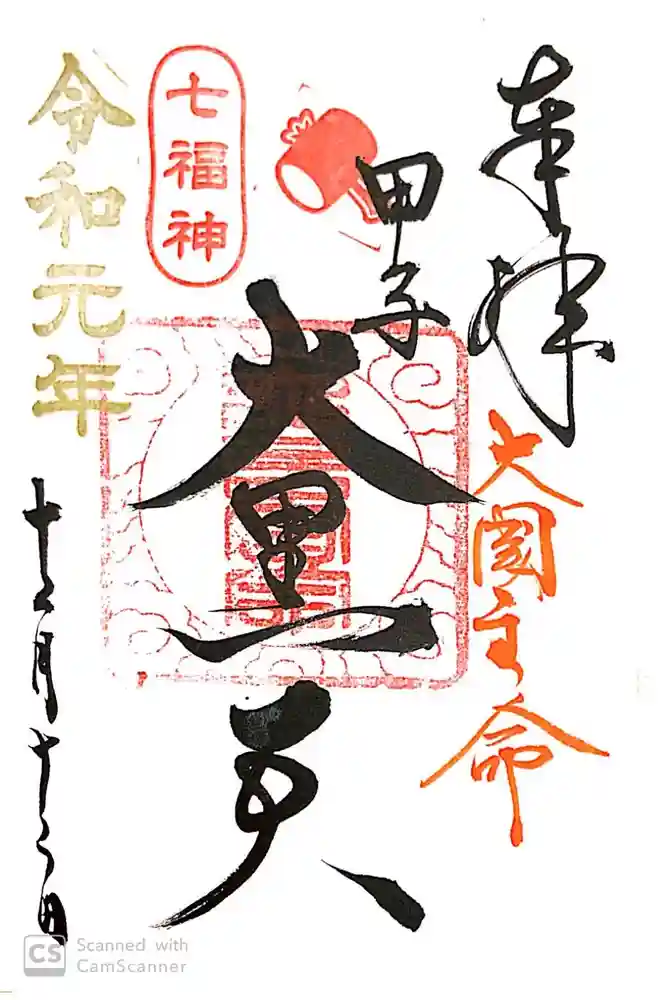 奉拝
大國主命
甲子
大黒天
七福神
令和元年
十二月十二日
CS
Scanned with
CamScanner